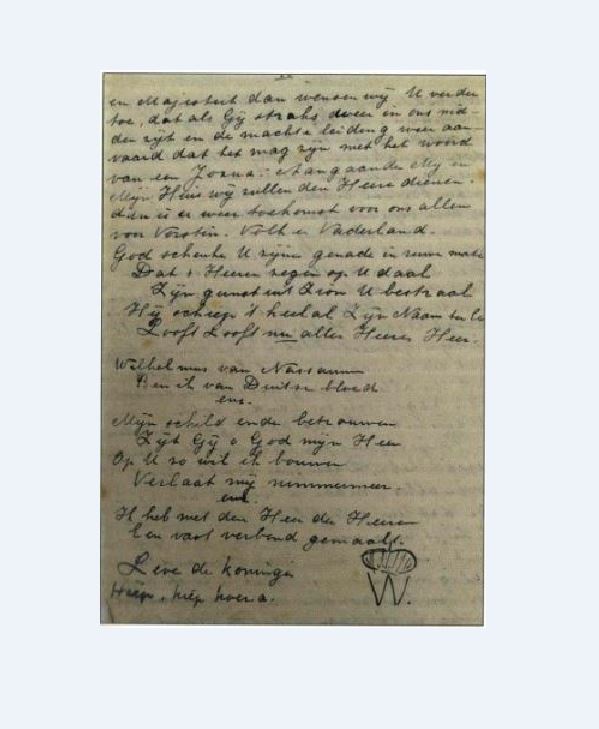 en Majesteit dan wensen wij U verder
toe, dat als Gij straks weer in ons mid-
den zijt en de machts leiding weer aan-
vaard dat het mag zijn met het woord
van een Jozua: Aangaande Mij en
Mijn Huis wij zullen den Heere dienen.
dan is er weer toekomst voor ons allen
voor Vorstin. Volk en Vaderland.
God schenke U zijne genade in ruime mate
Dat 's Heeren zegen op U daal
Zijn gunst uit Zion U bestraal
Hij schiep 't heelal Zijn Naam ter
Looft Looft nu aller Heeren Heer.
Wilhelmus van Nassauwe
Ben ik van Duitse bloed
enz.
Mijn schild ende betrouwen
Zijt Gij o God mijn Heer
Op U zo wil ik bouwen
Verlaat mij nimmermeer.
enz.
Ik heb met den Heer der Heeren
Een vast verbond gemaakt.
Leve de koningin
Hiep, hiep hoera.
W.